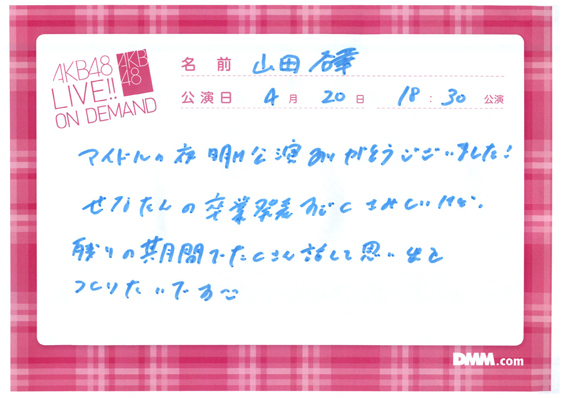 AKB48
LIVE!!
ON DEMAND
AKB
48
名前 山田 杏華
公演日 4月 20日 18:30 公演
アイドルの夜明け公演ありがとうございました!
せいたんの卒業発表すごくさみしいけど、
残りの期間でたくさん話して思い出を
つくりたいです
DMM.com